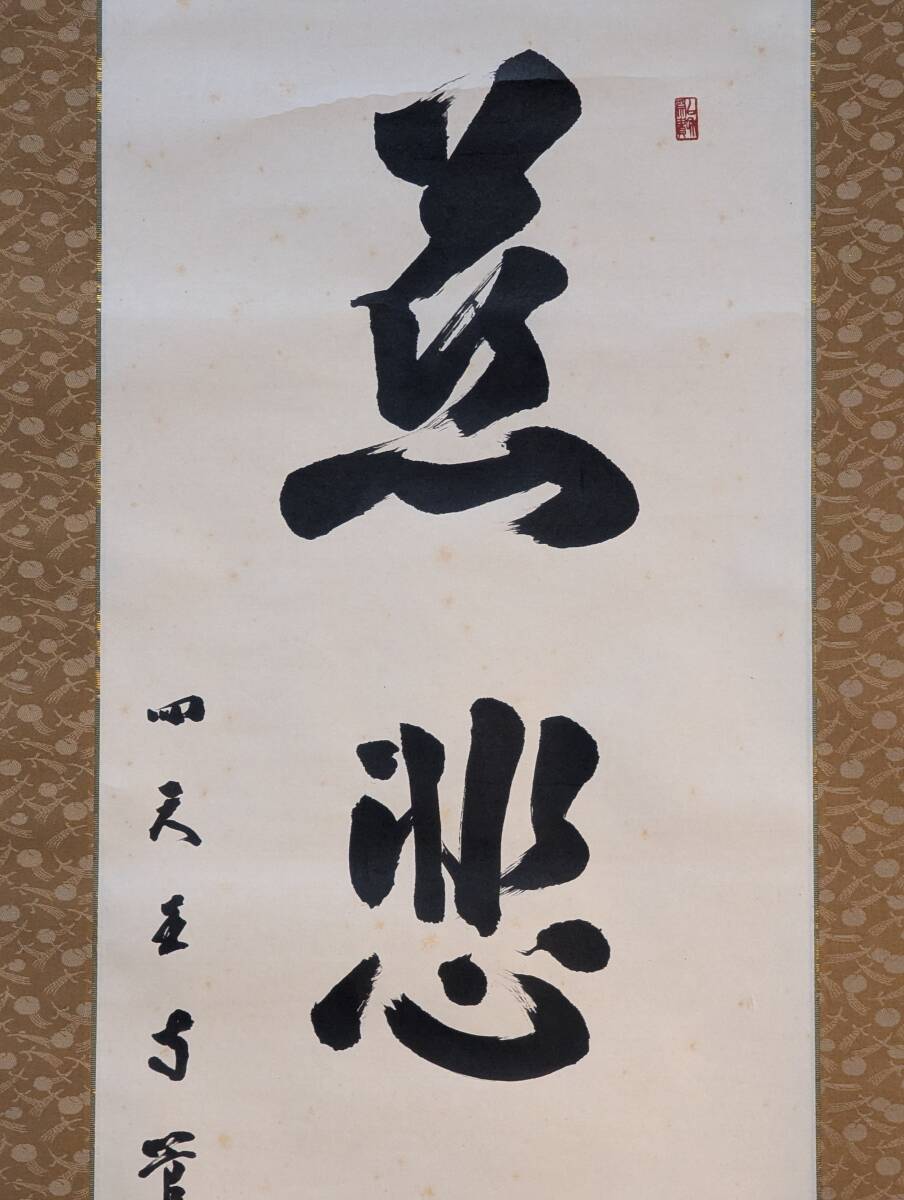 慈悲
四天王寺管